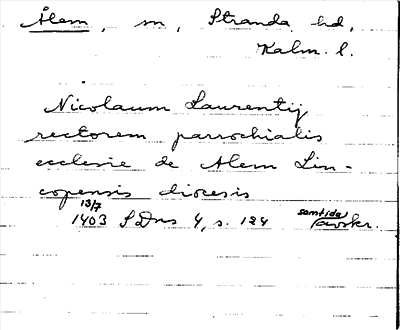 Ålem, sn, Stranda hd,
Kalm. l.
Nicolaum Laurentij
rectorem parrochialis
ecclesie de Alem Lin-
copensis diocesis
13/7 1403 SDns 1, s. 184 samtida avskr.